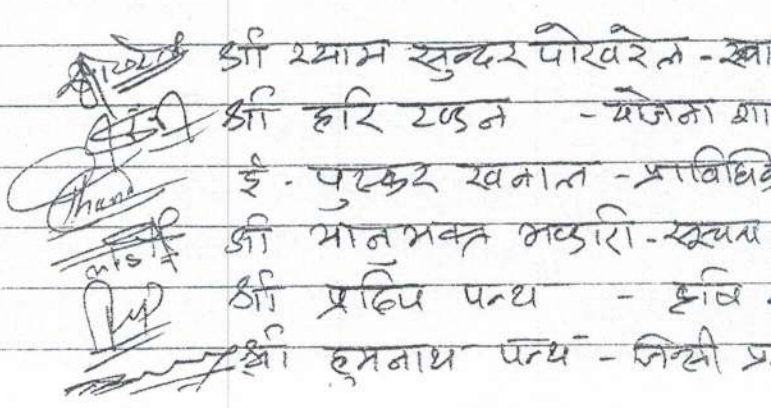 श्री श्याम सुन्दर पोखरेल - स्वा
श्री हरि टण्डन - योजना शा
ई. पुष्कर खनाल - प्राविधिक
श्री मानभक्त भण्डारी - सूचना
श्री प्रदिप पन्थ - कृषि
श्री हुमनाथ पन्थ - जिन्सी प्र